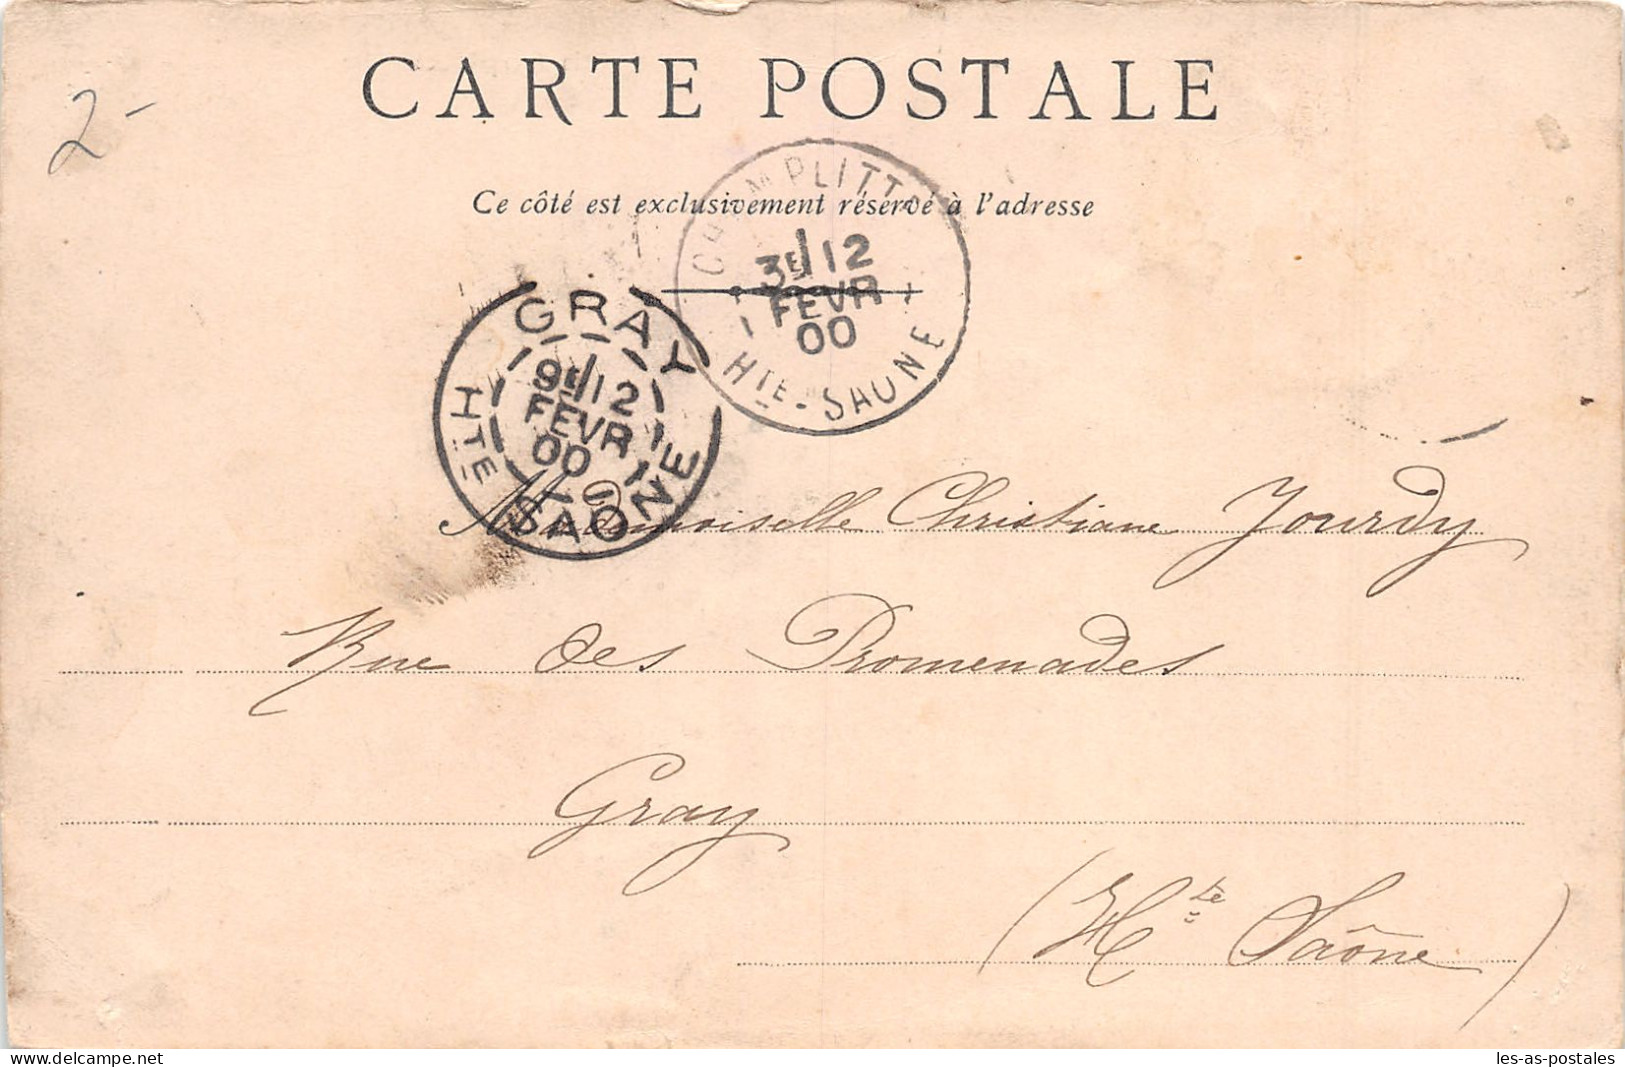 CARTE POSTALE
2-
Ce côté est exclusivement réservé à l'adresse
CHAMPLITTE
3E/12
FEVR
00
HTE-SAONE
GRAY
9E/12
FEVR
00
HTE SAONE
Mademoiselle Christiane Jourdy
Rue des Promenades
Gray
(Hte Saône)
delcampe.net
les-as-postales